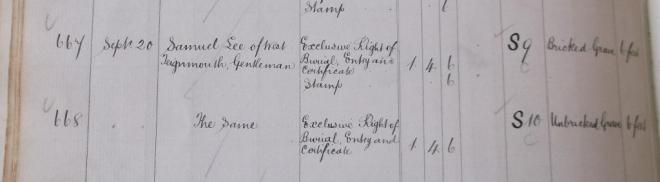 Stamp 6
667 Sept. 20 Samuel Lee of West Exclusive Right of S 9 Bricked Grave 6 feet
Teignmouth, Gentleman Burial, Entry and 1 4 6
Certificate
Stamp 6
668 . The Same Exclusive Right of S 10 Unbricked Grave 6 feet
Burial, Entry and
Certificate 1 4 6